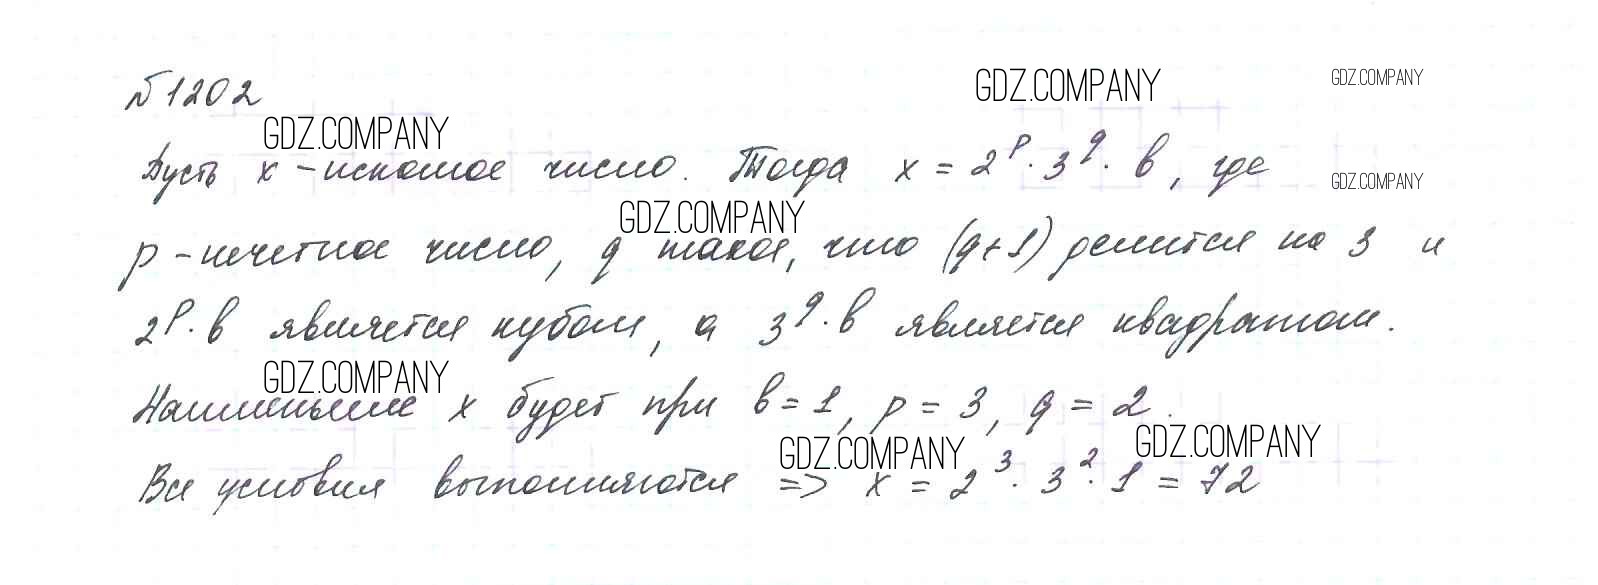 №1202
GDZ.COMPANY
GDZ.COMPANY
GDZ.COMPANY
Пусть x – искомое число. Тогда x = 2^p · 3^q · b, где
GDZ.COMPANY
GDZ.COMPANY
p – нечетное число, q такое, что (q+1) делится на 3 и
2^p · b является кубом, а 3^q · b является квадратом.
GDZ.COMPANY
Наименьшее x будет при b = 1, p = 3, q = 2.
GDZ.COMPANY
GDZ.COMPANY
Все условия выполняются => x = 2^3 · 3^2 · 1 = 72